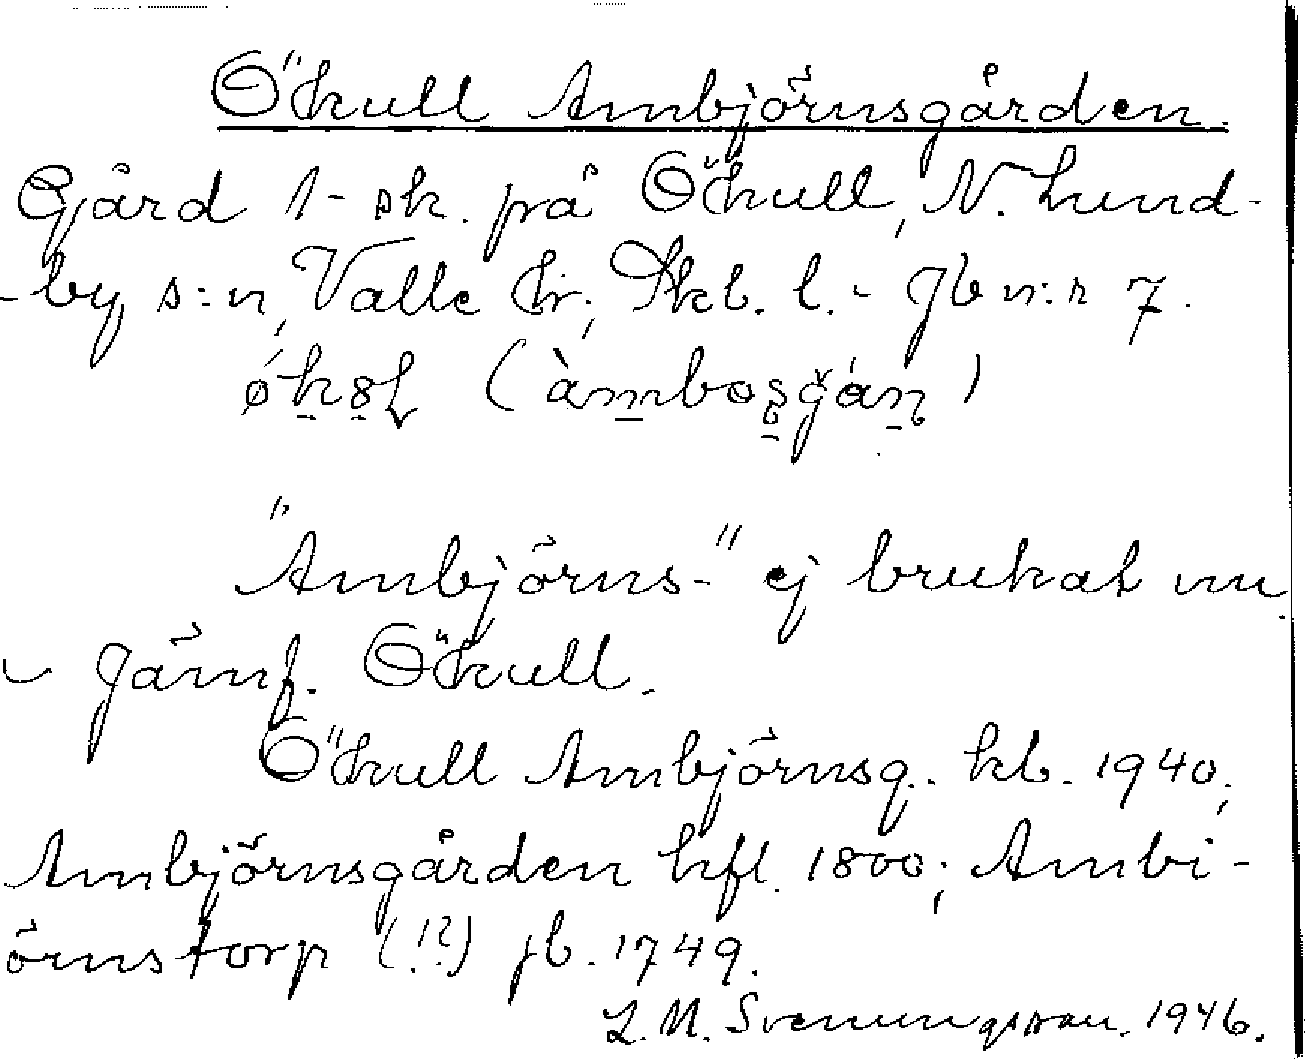 Ökull Ambjörnsgården.
Gård 1-sk. på Ökull, N. Lund-
-by s:n, Valle hr, Skb. l. - Jb n:r 7.
(
"Ambjörns-" ej brukat nu
- Jämf. Ökull.
Ökull Ambjörnsg. kb. 1940;
Ambjörnsgården hfl. 1800; Ambi-
örnstorp (!?) jb. 1749.
L. M. Svenungsson. 1946.